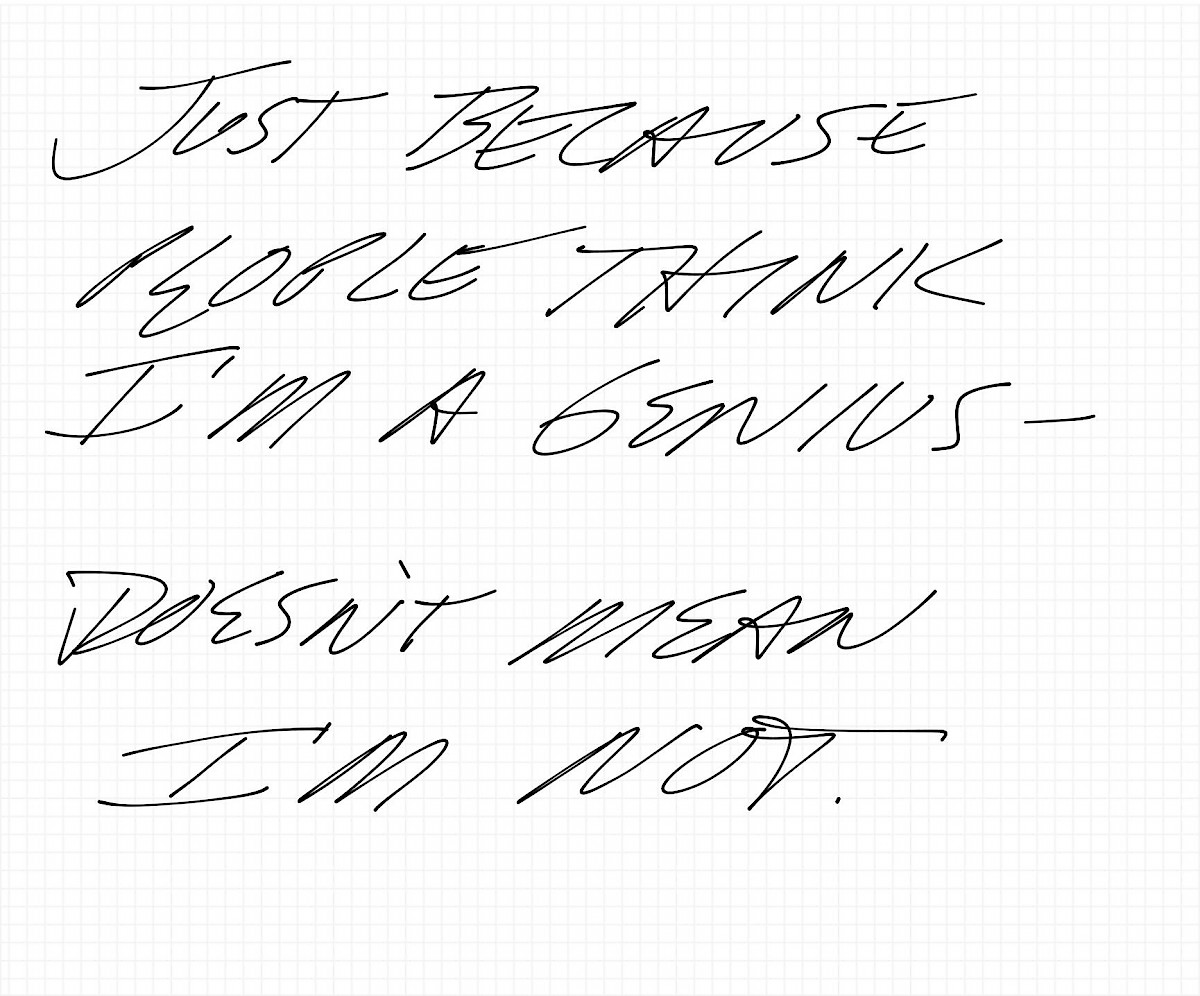 JUST BECAUSE
PEOPLE THINK
I'M A GENIUS—
DOESN'T MEAN
I'M NOT.